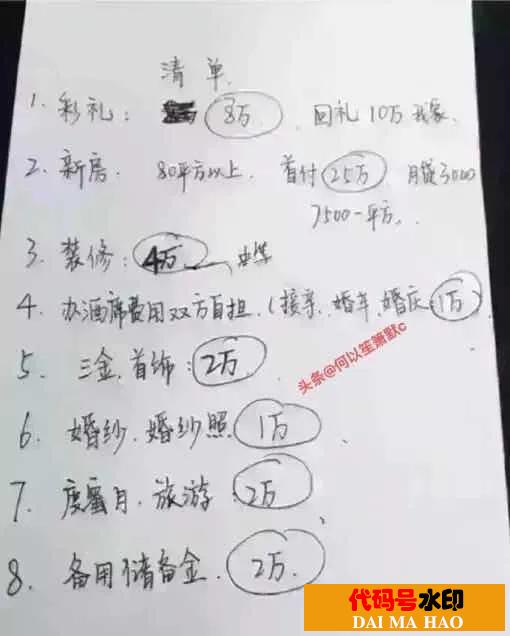 清单
1. 彩礼: 8万 回礼10万 我家.
2. 新房. 80平方以上, 首付 25万 月贷3000
7500一平方.
3. 装修: 4万
4. 办酒席费用双方自担. (接亲. 婚车. 婚庆 1万
头条@何以笙箫默c
5. 三金. 首饰: 2万
6. 婚纱. 婚纱照 1万
7. 度蜜月. 旅游 2万
8. 备用储备金. 2万.
代码号水印
DAI MA HAO